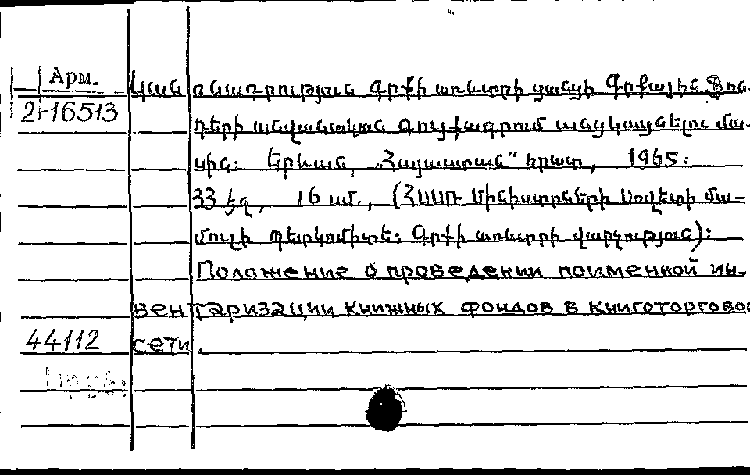 Арм.
2Ւ-16513
Կան ոնադրության Գրքի առևտրի ցանցի Գրքային Ֆոն
դերի անվանական Գույքագրում անցկացնելու մա-
սին: Երևան, „Հայաստան" հրատ, 1965.
33 էջ, 16 սմ., (ՀՍՍՌ Մինիստրների Սովետի մա-
մուլի պետկոմիտե: Գրքի առևտրի վարչություն):
Положение о проведении поименной ин-
вентаризации книжных фондов в книготоргово
44112 сети.